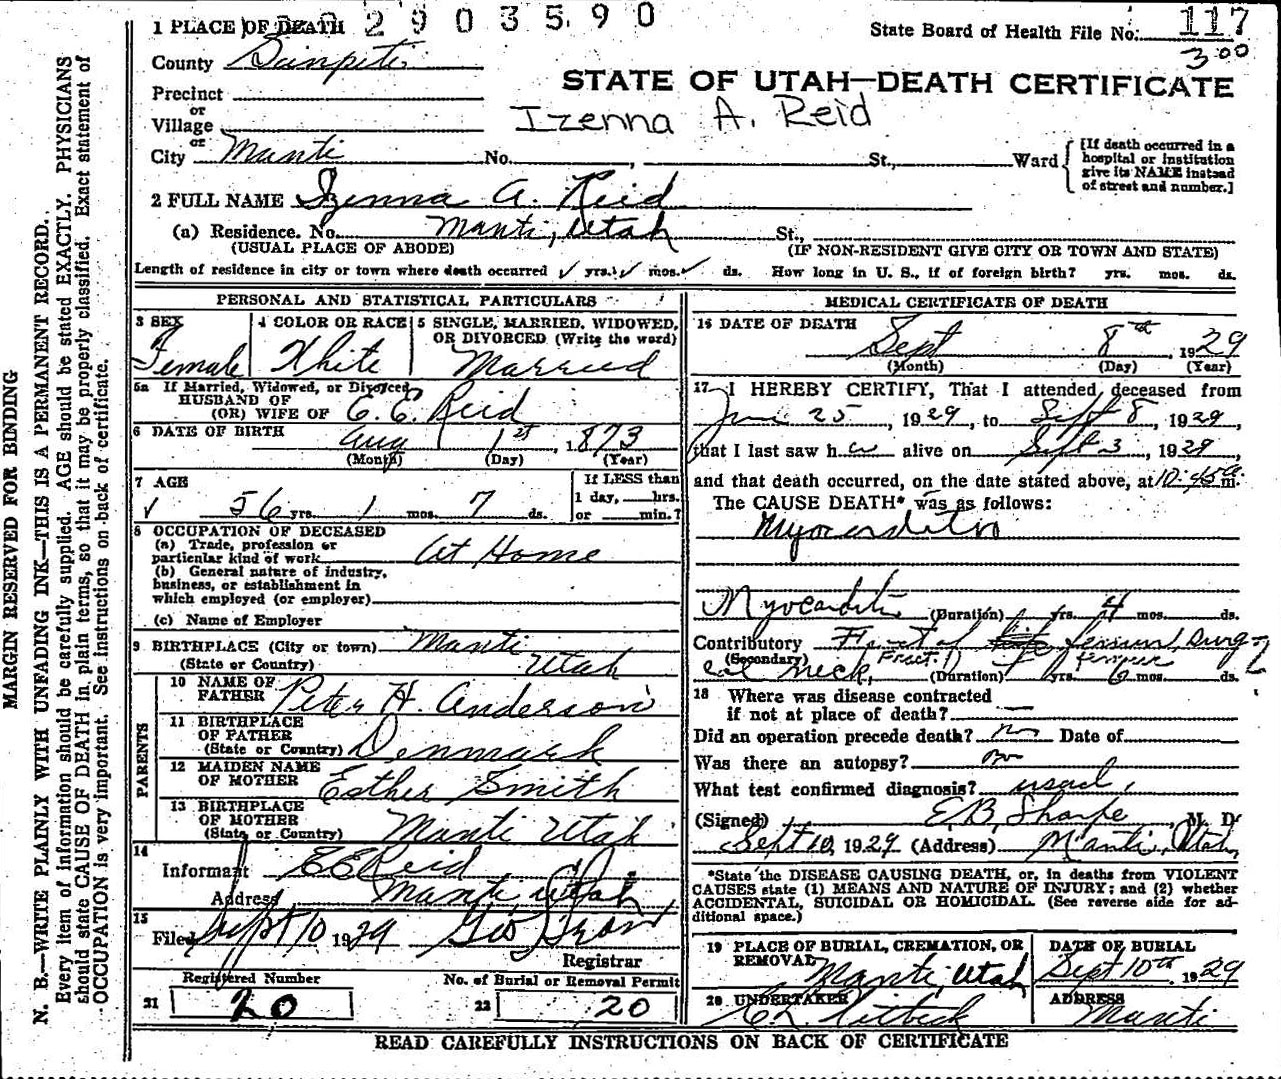 1 PLACE OF DEATH 2 9 0 3 5 9 0
State Board of Health File No. 117
3 00
County Sanpete
STATE OF UTAH—DEATH CERTIFICATE
Precinct
or
Village
Izenna A. Reid
or
City Manti No. , St., Ward
[If death occurred in a hospital or institution give its NAME instead of street and number.]
2 FULL NAME Izenna A. Reid
(a) Residence. No. Manti, Utah St.,
(USUAL PLACE OF ABODE) (IF NON-RESIDENT GIVE CITY OR TOWN AND STATE)
Length of residence in city or town where death occurred ✓ yrs. ✓ mos. ✓ ds. How long in U. S., if of foreign birth? yrs. mos. ds.
PERSONAL AND STATISTICAL PARTICULARS
3 SEX
Female
4 COLOR OR RACE
White
5 SINGLE, MARRIED, WIDOWED, OR DIVORCED (Write the word)
Married
5a If Married, Widowed, or Divorced
HUSBAND OF
(OR) WIFE OF E. E. Reid
6 DATE OF BIRTH Aug 1st, 1873
(Month) (Day) (Year)
7 AGE
✓ 56 yrs. 1 mos. 7 ds.
If LESS than
1 day, hrs.
or min.?
8 OCCUPATION OF DECEASED
(a) Trade, profession or
particular kind of work At Home
(b) General nature of industry,
business, or establishment in
which employed (or employer)
(c) Name of Employer
9 BIRTHPLACE (City or town) Manti
(State or Country) Utah
PARENTS
10 NAME OF
FATHER Peter H. Anderson
11 BIRTHPLACE
OF FATHER
(State or Country) Denmark
12 MAIDEN NAME
OF MOTHER Esther Smith
13 BIRTHPLACE
OF MOTHER
(State or Country) Manti Utah
14
Informant E E Reid
Address Manti, Utah
15
Filed Sept 10 1929
Registrar
Registered Number
21 20
No. of Burial or Removal Permit
22 20
MEDICAL CERTIFICATE OF DEATH
16 DATE OF DEATH
Sept 8th, 1929
(Month) (Day) (Year)
17 I HEREBY CERTIFY, That I attended deceased from
June 25, 1929, to Sept 8, 1929,
that I last saw her alive on Sept 3, 1929,
and that death occurred, on the date stated above, at 10:45 a m.
The CAUSE DEATH* was as follows:
Myocarditis
Myocarditis (Duration) yrs. 4 mos. ds.
Contributory Fract of femur, Surg-
(Secondary) ical neck, Fract. femur
(Duration) yrs. 6 mos. ds.
18 Where was disease contracted
if not at place of death?
Did an operation precede death? no Date of
Was there an autopsy? no
What test confirmed diagnosis? usual
(Signed) E B Sharpe, M. D.
Sept 10, 1929 (Address) Manti, Utah
*State the DISEASE CAUSING DEATH, or, in deaths from VIOLENT
CAUSES state (1) MEANS AND NATURE OF INJURY; and (2) whether
ACCIDENTAL, SUICIDAL OR HOMICIDAL. (See reverse side for ad-
ditional space.)
19 PLACE OF BURIAL, CREMATION, OR
REMOVAL
Manti, Utah
DATE OF BURIAL
Sept 10th, 1929
20 UNDERTAKER
ADDRESS
Manti
READ CAREFULLY INSTRUCTIONS ON BACK OF CERTIFICATE
MARGIN RESERVED FOR BINDING
N. B.—WRITE PLAINLY WITH UNFADING INK—THIS IS A PERMANENT RECORD.
Every item of information should be carefully supplied. AGE should be stated EXACTLY. PHYSICIANS
should state CAUSE OF DEATH in plain terms, so that it may be properly classified. Exact statement of
OCCUPATION is very important. See instructions on back of certificate.